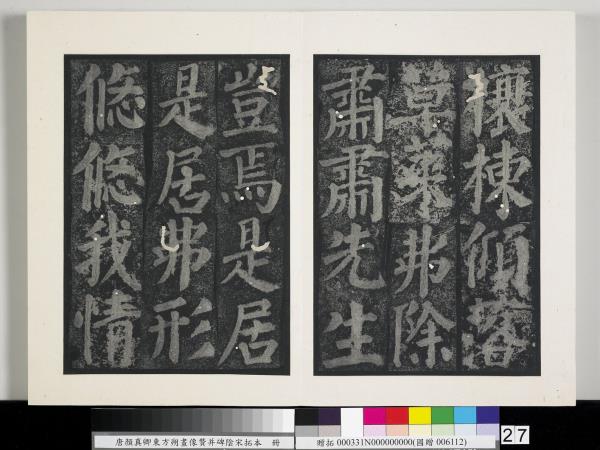 榱棟傾落
草萊弗除
肅肅先生
豈焉是居
是居弗形
悠悠我情
唐顏真卿東方朔畫像贊并碑陰宋拓本 冊
贈拓 000331N000000000(國贈 006112)
27